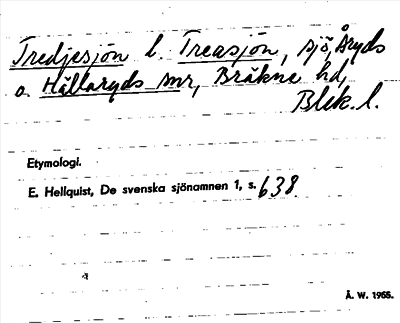 Tredjesjön l. Treasjön, sjö, Åryds
o. Hällaryds snr, Bräkne hd,
Blek. l.
Etymologi.
E. Hellquist, De svenska sjönamnen 1, s. 638
Å. W. 1965.